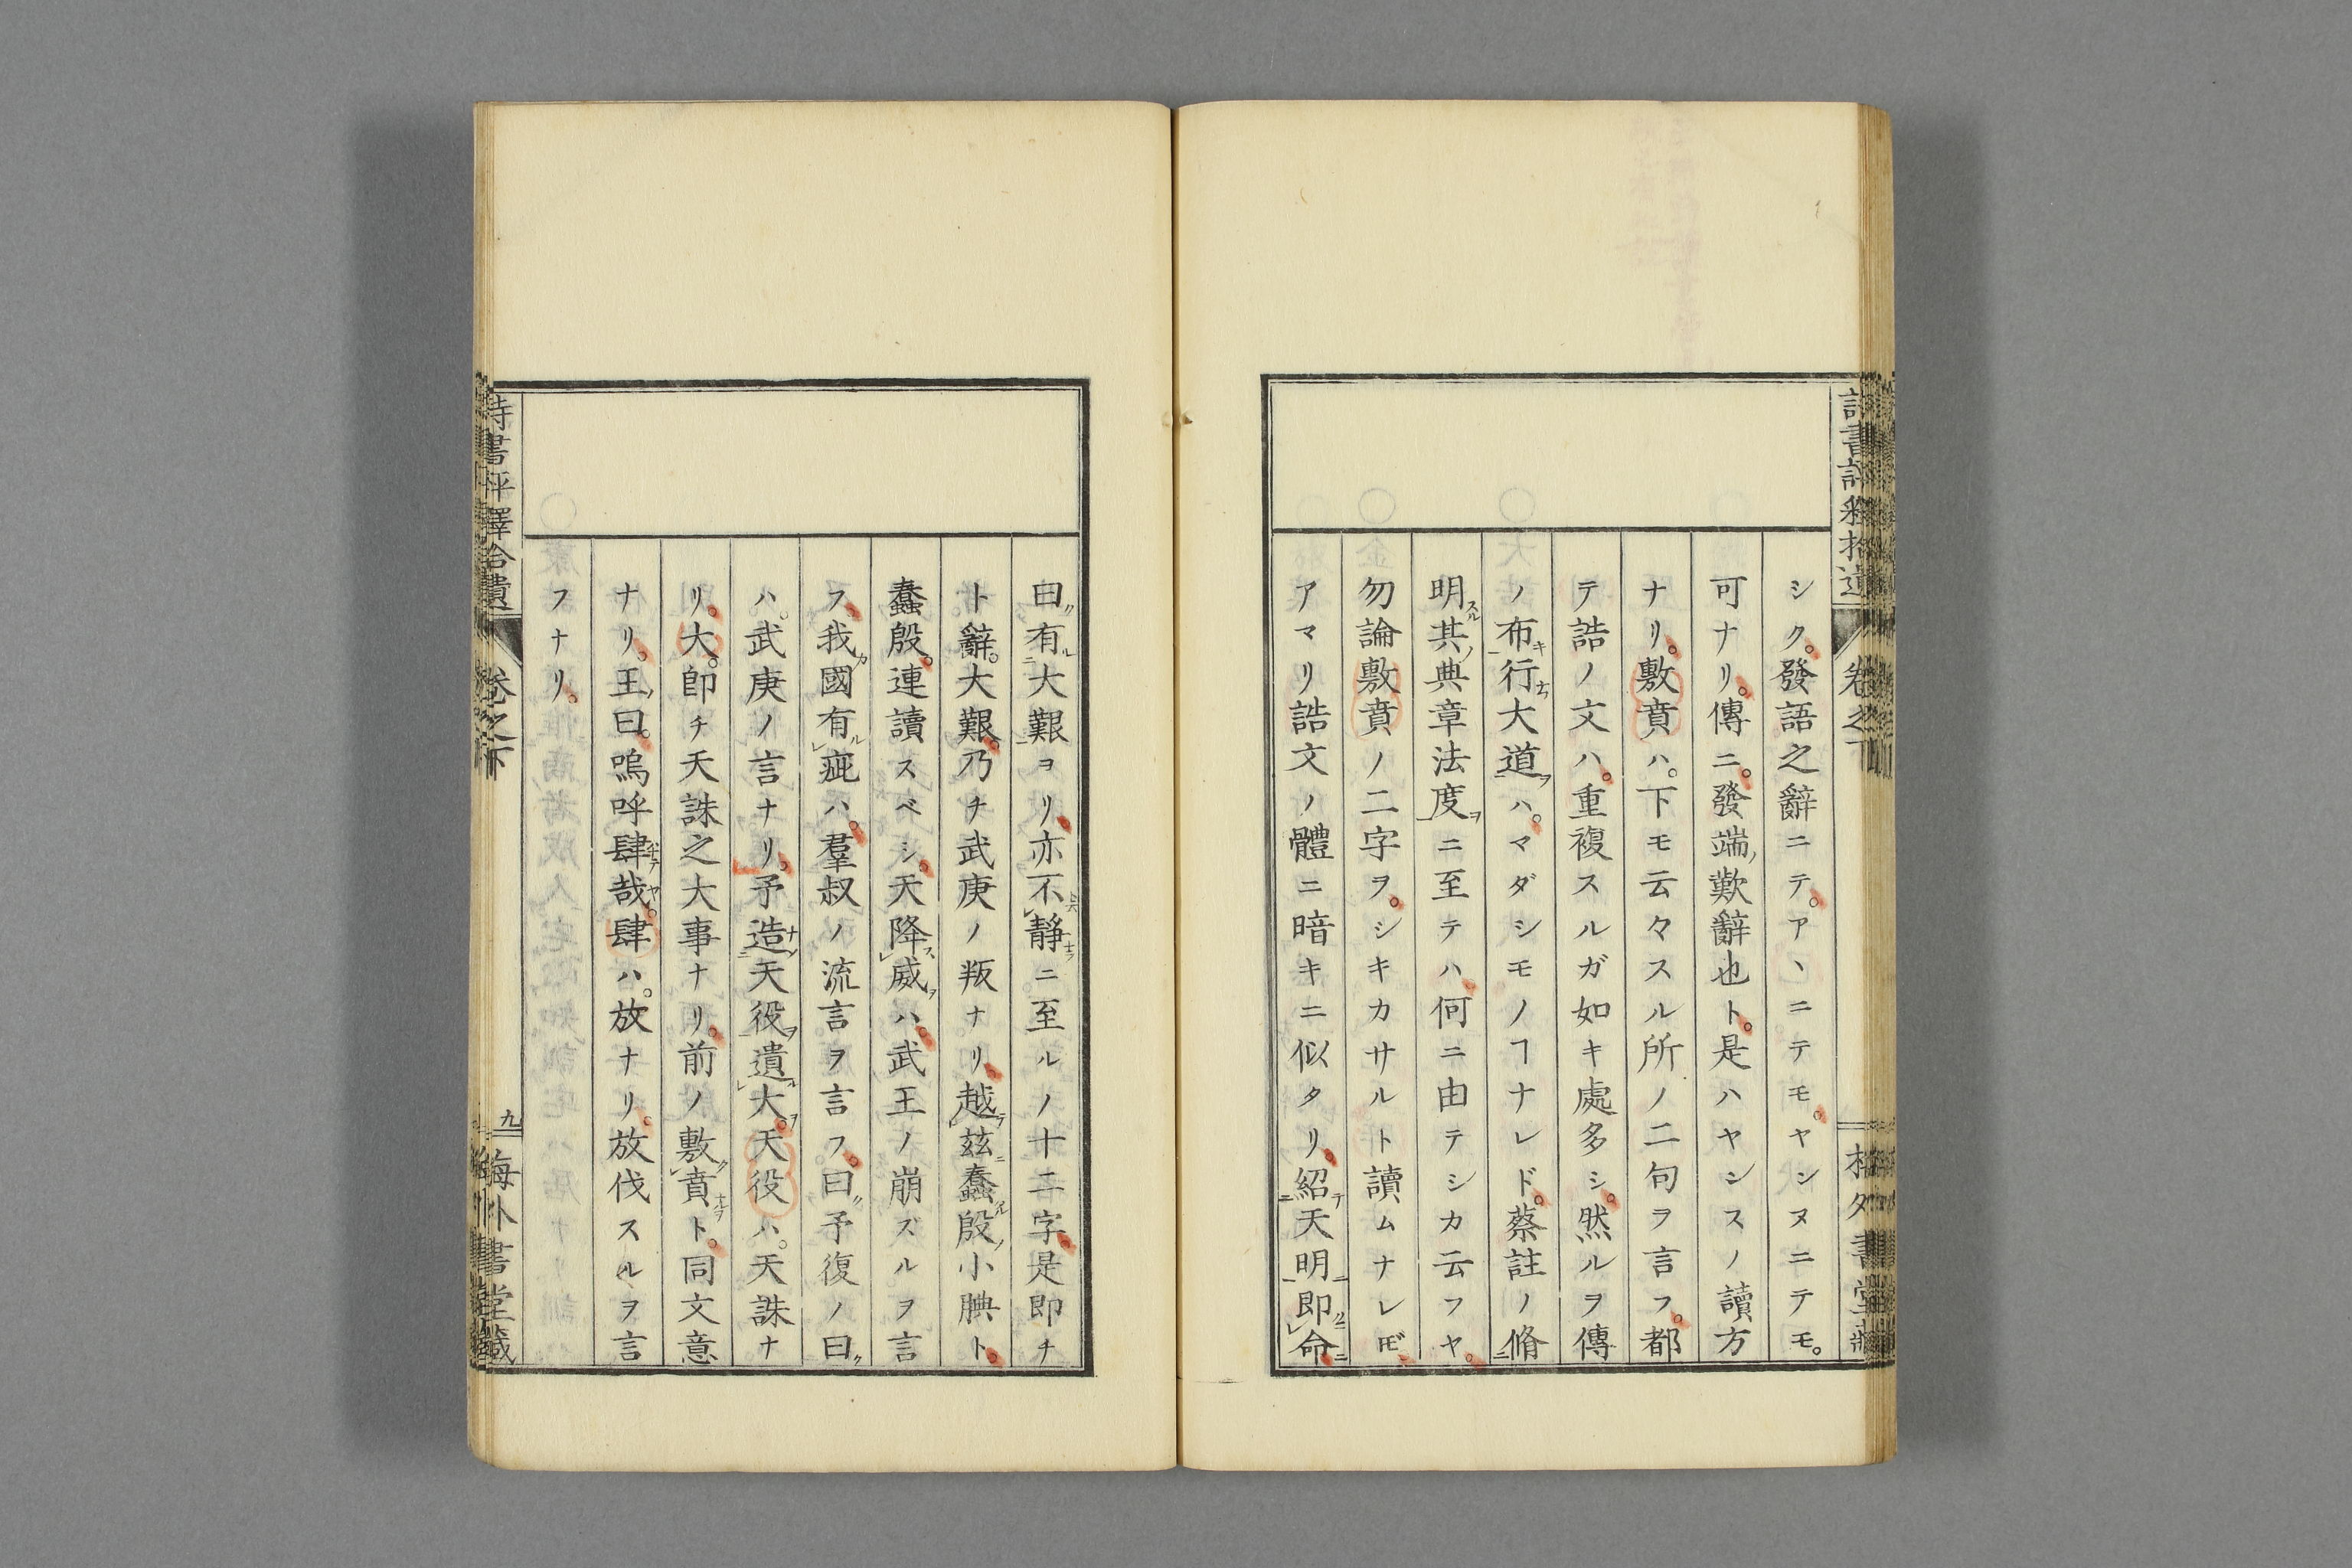 シク。發語之辭ニテ。アヽニテモ。ヤンヌニテモ。
可ナリ。傳ニ。發端歎辭也ト。是ハヤシスノ讀方
ナリ。敷賁ハ。下モ云々スル所ノ二句ヲ言フ。都
テ誥ノ文ハ。重複スルガ如キ處多シ。然ルヲ傳
ノ布キ行ナヲ大道ヲハ。マダシモノヿナレド。蔡註ノ脩
明スル其ノ典章法度ヲニ至テハ。何ニ由テシカ云フヤ。
勿論敷賁ノ二字ヲ。シキカサルト讀ムナレ𪜈。
アマリ誥文ノ體ニ暗キニ似タリ。紹テ天明ニ即クニ命ニ
曰〃有ル大艱ヨリ。亦不静ニ至ルノ十二字。是即チ
ト辭。大艱。乃チ武庚ノ叛ナリ。越テ茲ニ蠢アル殷ノ小腆ト。
蠢殷。連讀スベシ。天降ス威ヲハ。武王ノ崩ズルヲ言
フ。我カ國有ル疵ハ。羣叔ノ流言ヲ言フ。曰〃予復ノ曰〃
ハ。武庚ノ言ナリ。予造ナス天役ヲ遺ル大ヲ。天役ハ。天誅ナ
リ。大。卽チ天誅之大事ナリ。前ノ敷ク賁ナルヲト。同文意
ナリ。王ノ曰。嗚呼肆哉ヤ。肆ハ。放ナリ。放伐スルヲ言
フナリ。
詩書評釋拾遺
卷之下
九
梅外書堂藏